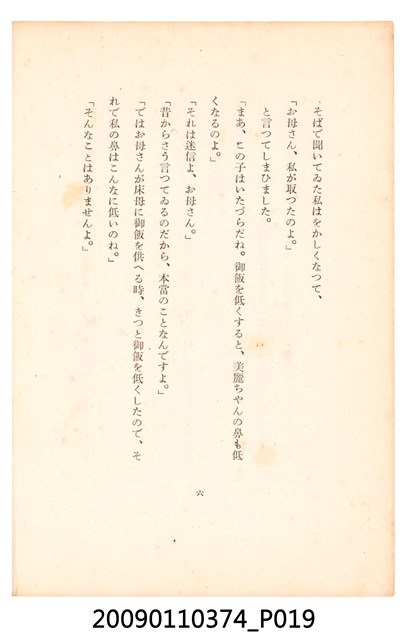 そばで聞いてゐた私はをかしくなつて、
「お母さん、私が取つたのよ。」
と言つてしまひました。
「まあ、この子はいたづらだね。御飯を低くすると、美麗ちやんの鼻も低
くなるのよ。」
「それは迷信よ、お母さん。」
「昔からさう言つてゐるのだから、本當のことなんですよ。」
「ではお母さんが床母に御飯を供へる時、きつと御飯を低くしたので、そ
れで私の鼻はこんなに低いのね。」
「そんなことはありませんよ。」
六
20090110374_P019